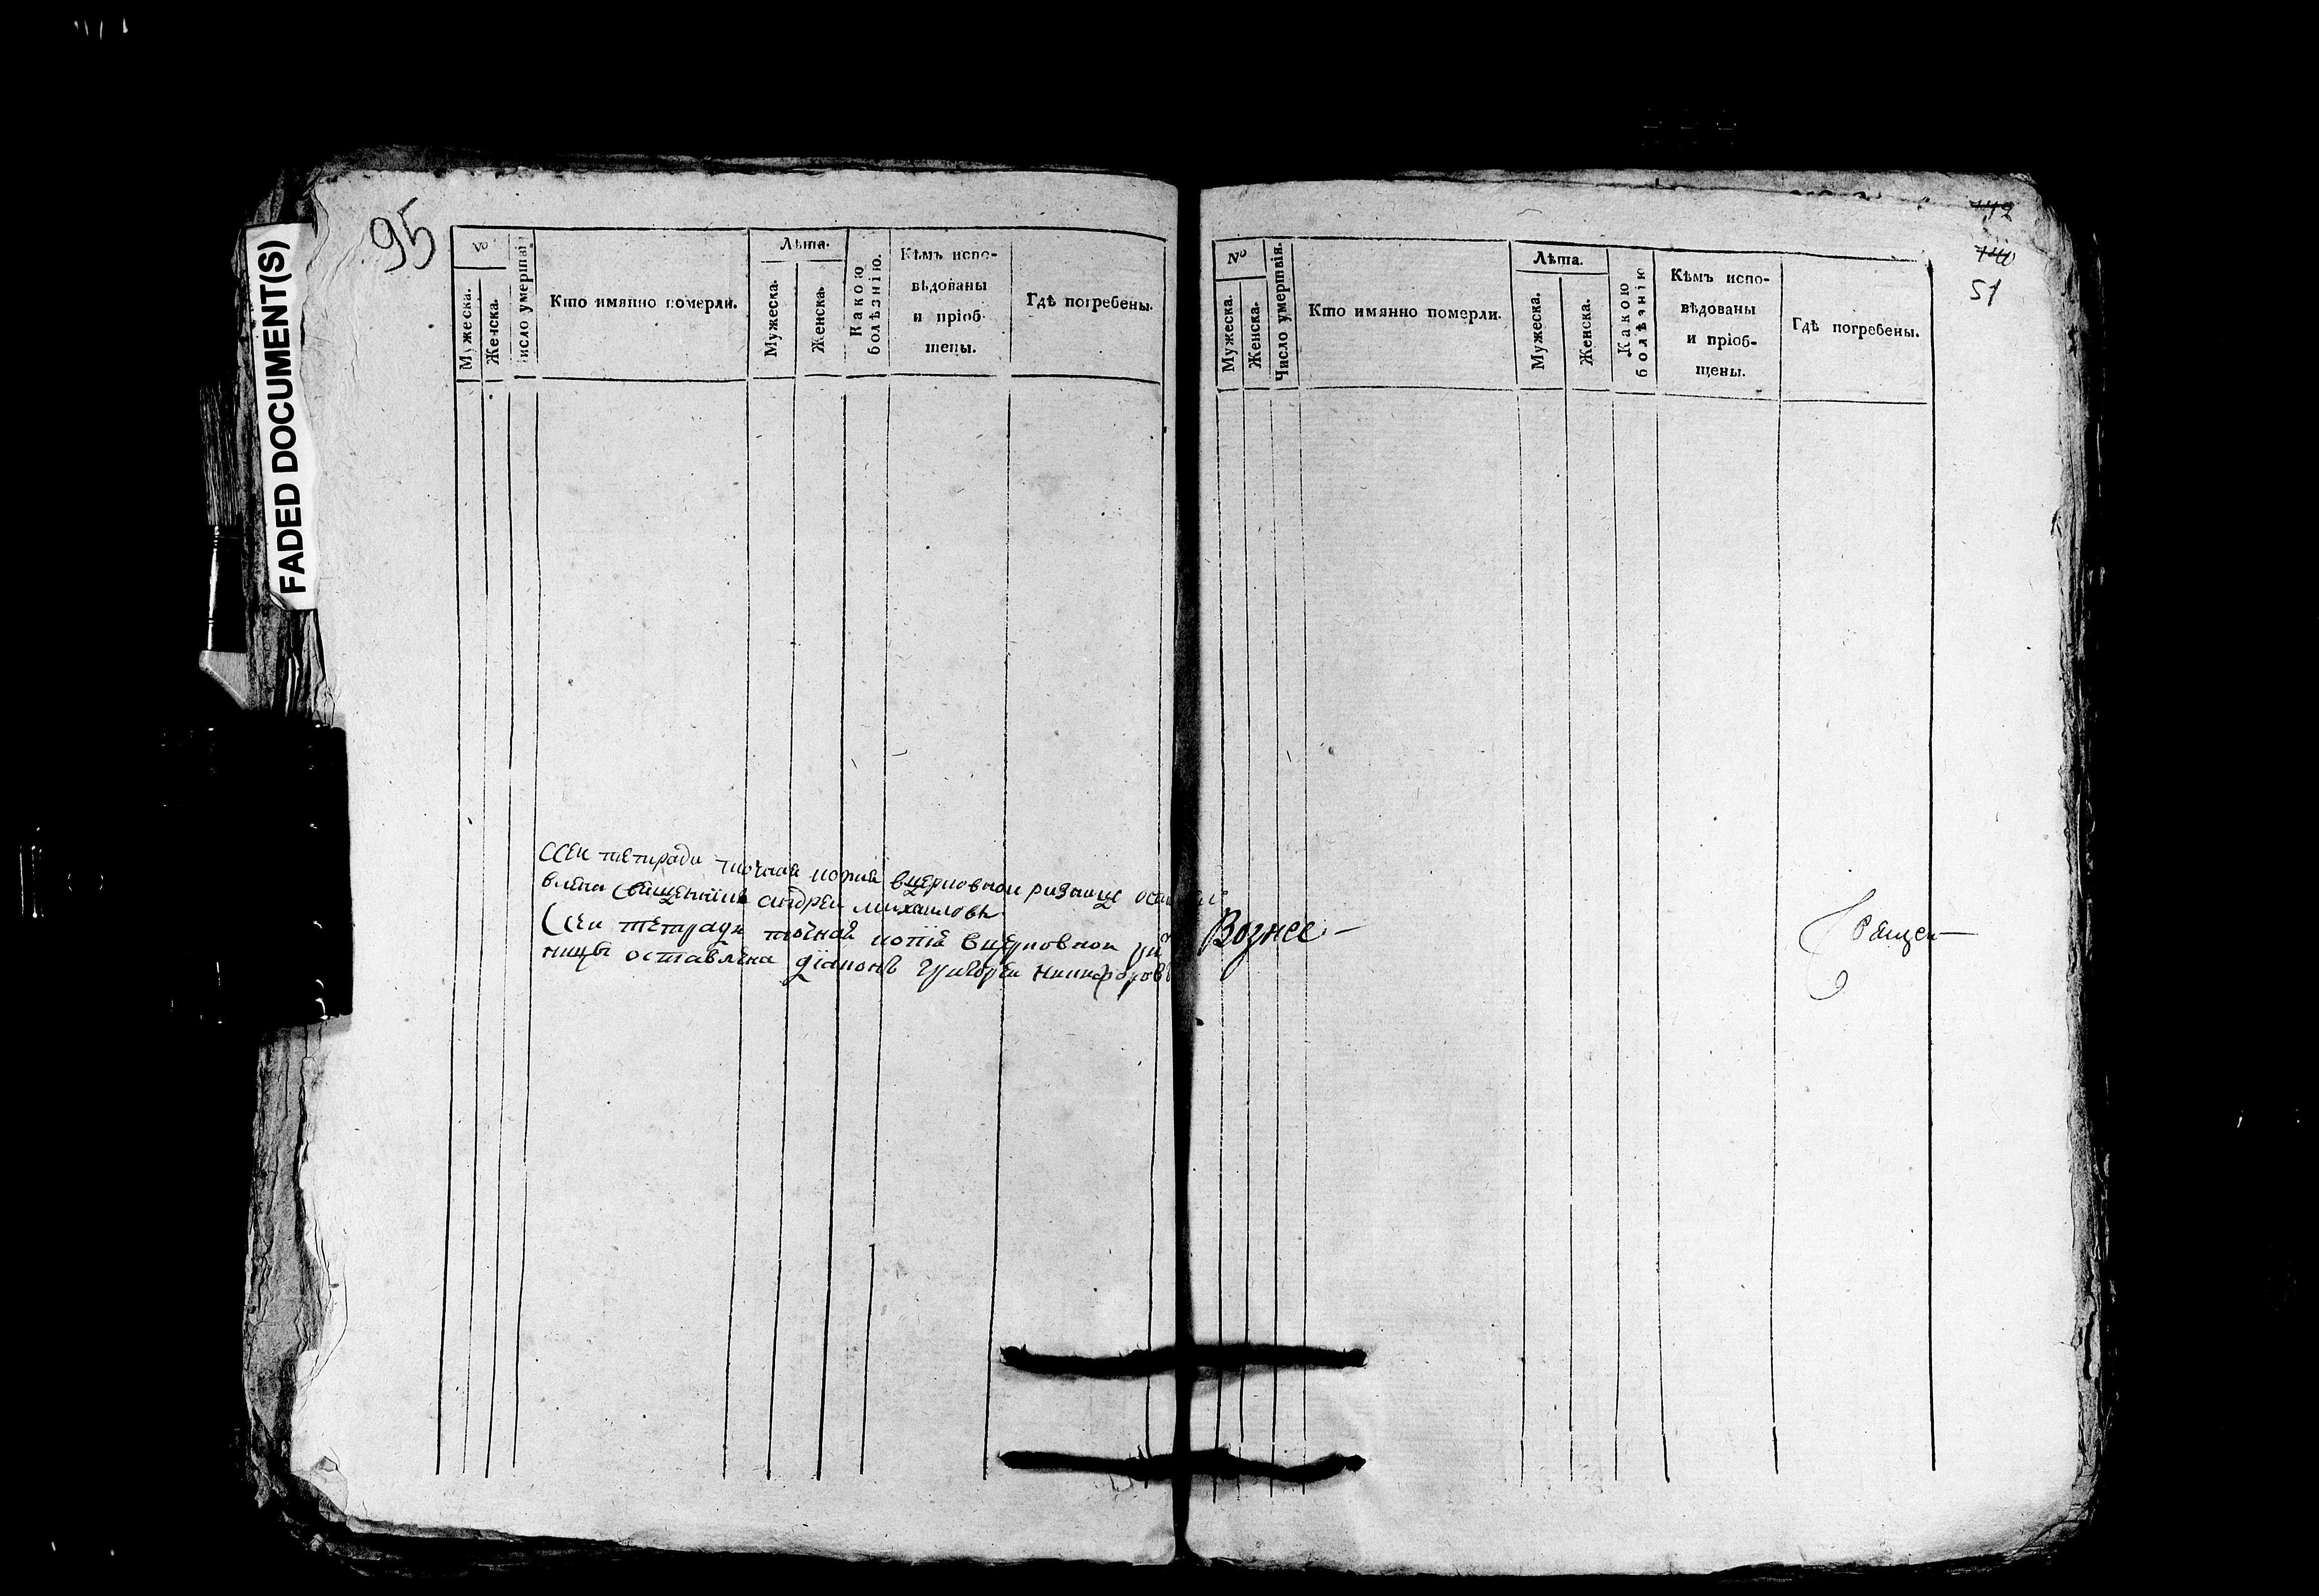 FADED DOCUMENT(S)
95
№
Мужеска.
Женска.
число умертвi
Кто имянно померли.
Лѣта.
Мужеска.
Женска.
Какою болѣзнію.
Кѣмъ испо-
вѣдованы
и пріоб-
щены.
Гдѣ погребены.
ССеи тетради точная копия вцерковнои ризнице
влена Священникъ андреи михаиловъ
Ссеи тетради точная копїя вцерковнои ри
ницы оставлена дїаконъ григореи никифоровъ
142
140
51
№
Мужеска.
Женска.
Число умертвія.
Кто имянно померли.
Лѣта.
Мужеска.
Женска.
Какою болѣзнію
Кѣмъ испо-
вѣдованы
и пріоб-
щены.
Гдѣ погребены.
Вознее-
Священ-